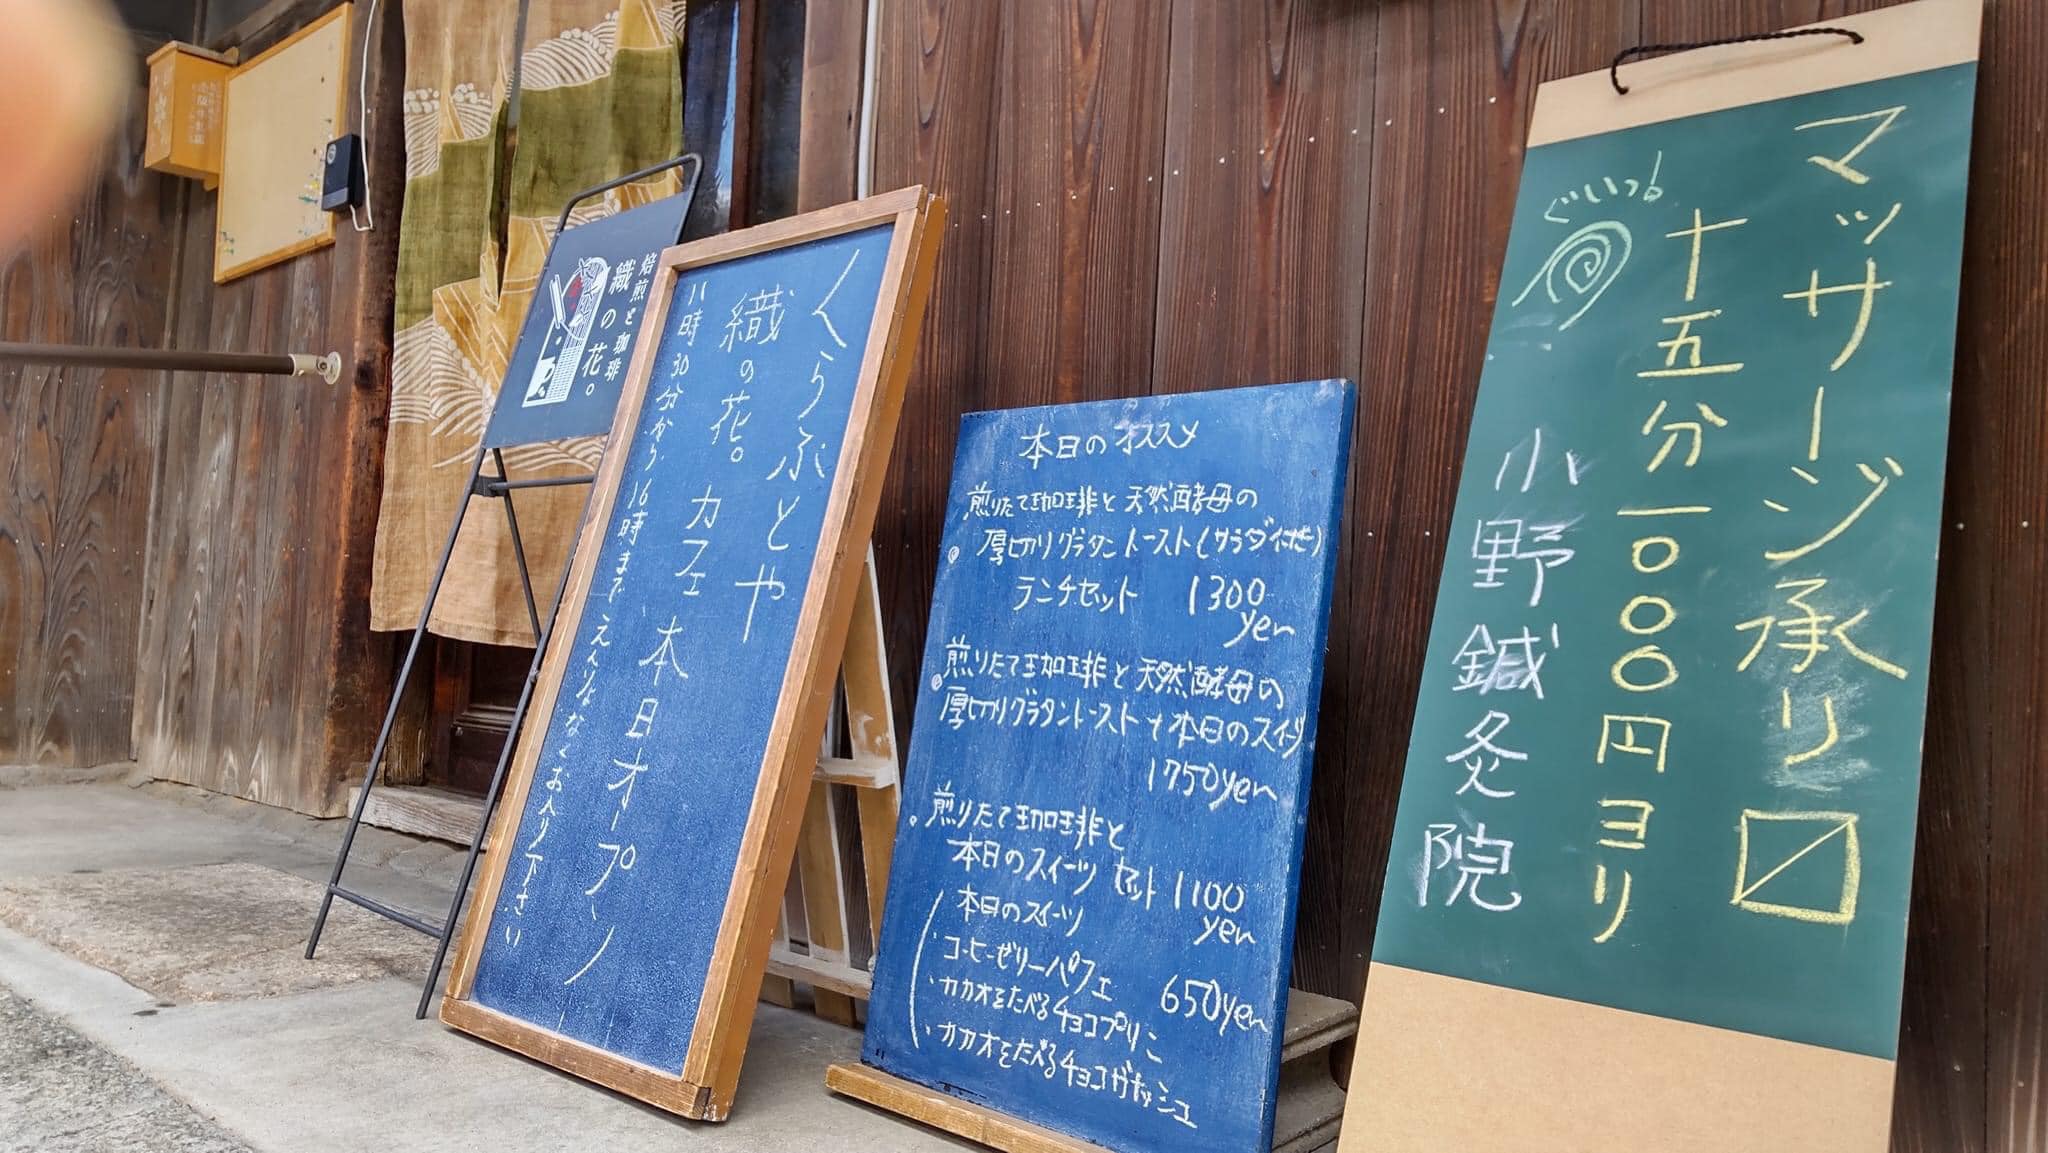 焙煎と珈琲
織の花。
くらふとや
織の花。カフェ本日オープン
11時30分から16時まで えんりょなくお入り下さい
本日のオススメ
煎りたて珈琲と天然酵母の
厚切りグラタントースト(サラダ付き)
ランチセット 1300
yen
煎りたて珈琲と天然酵母の
厚切りグラタントースト+本日のスイーツ
1750yen
煎りたて珈琲と
本日のスイーツ セット 1100
yen
本日のスイーツ
・コーヒーゼリーパフェ 650yen
・カカオをたべるチョコプリン
・カカオをたべるチョコガナッシュ
マッサージ承り〼
十五分一〇〇〇円ヨリ
ぐいっ
小野鍼灸院